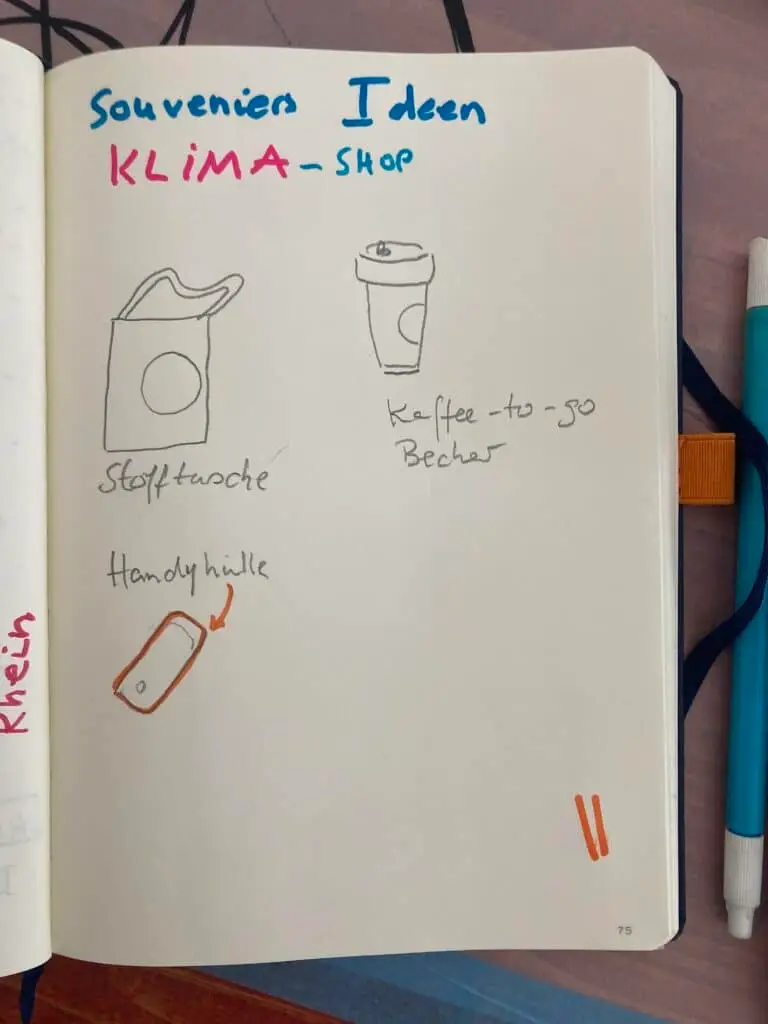 Souveniers Ideen
KLiMA - SHOP
Stofftasche
Kaffee-to-go
Becher
Handyhülle
Rhein
75